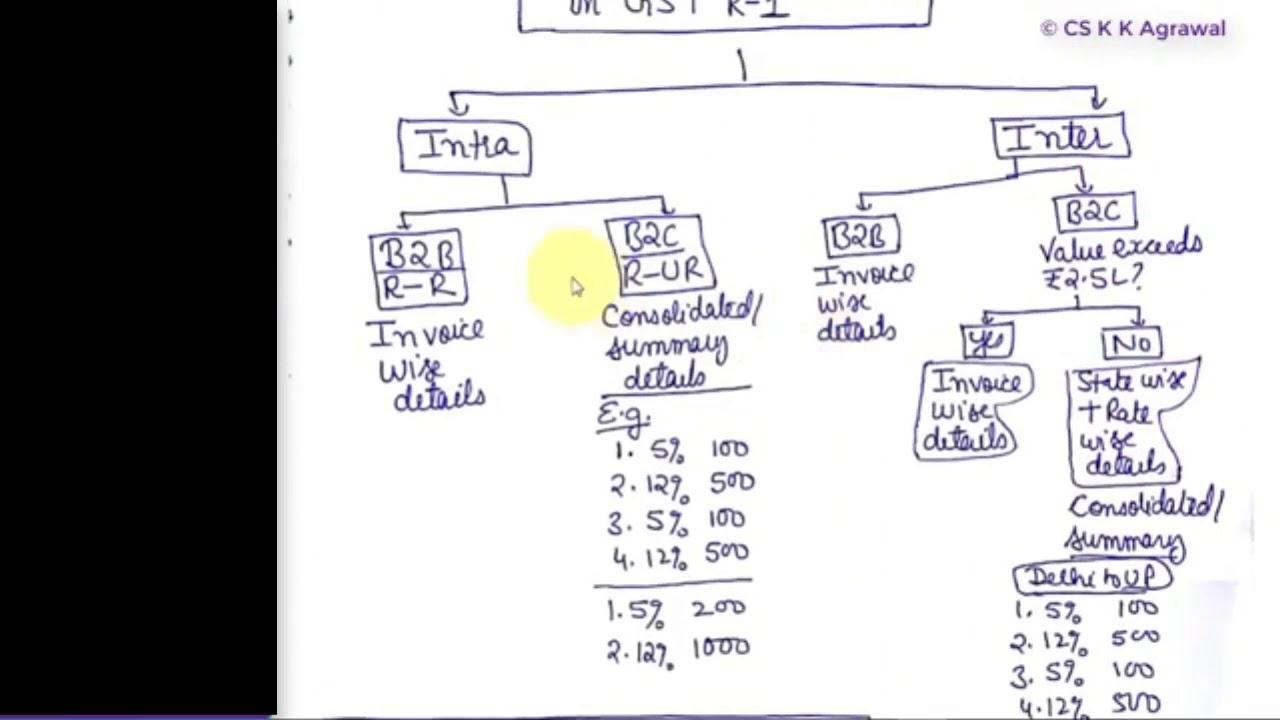 in GST R-1
© CS K K Agrawal
Intra
Inter
B2B
R-R
Invoice
wise
details
B2C
R-UR
Consolidated/
summary
details
E.g.
1. 5% 100
2. 12% 500
3. 5% 100
4. 12% 500
1. 5% 200
2. 12% 1000
B2B
Invoice
wise
details
B2C
Value exceeds
₹2.5L?
Yes
Invoice
wise
details
No
State wise
+ Rate
wise
details
Consolidated/
summary
Delhi to UP
1. 5% 100
2. 12% 500
3. 5% 100
4. 12% 500